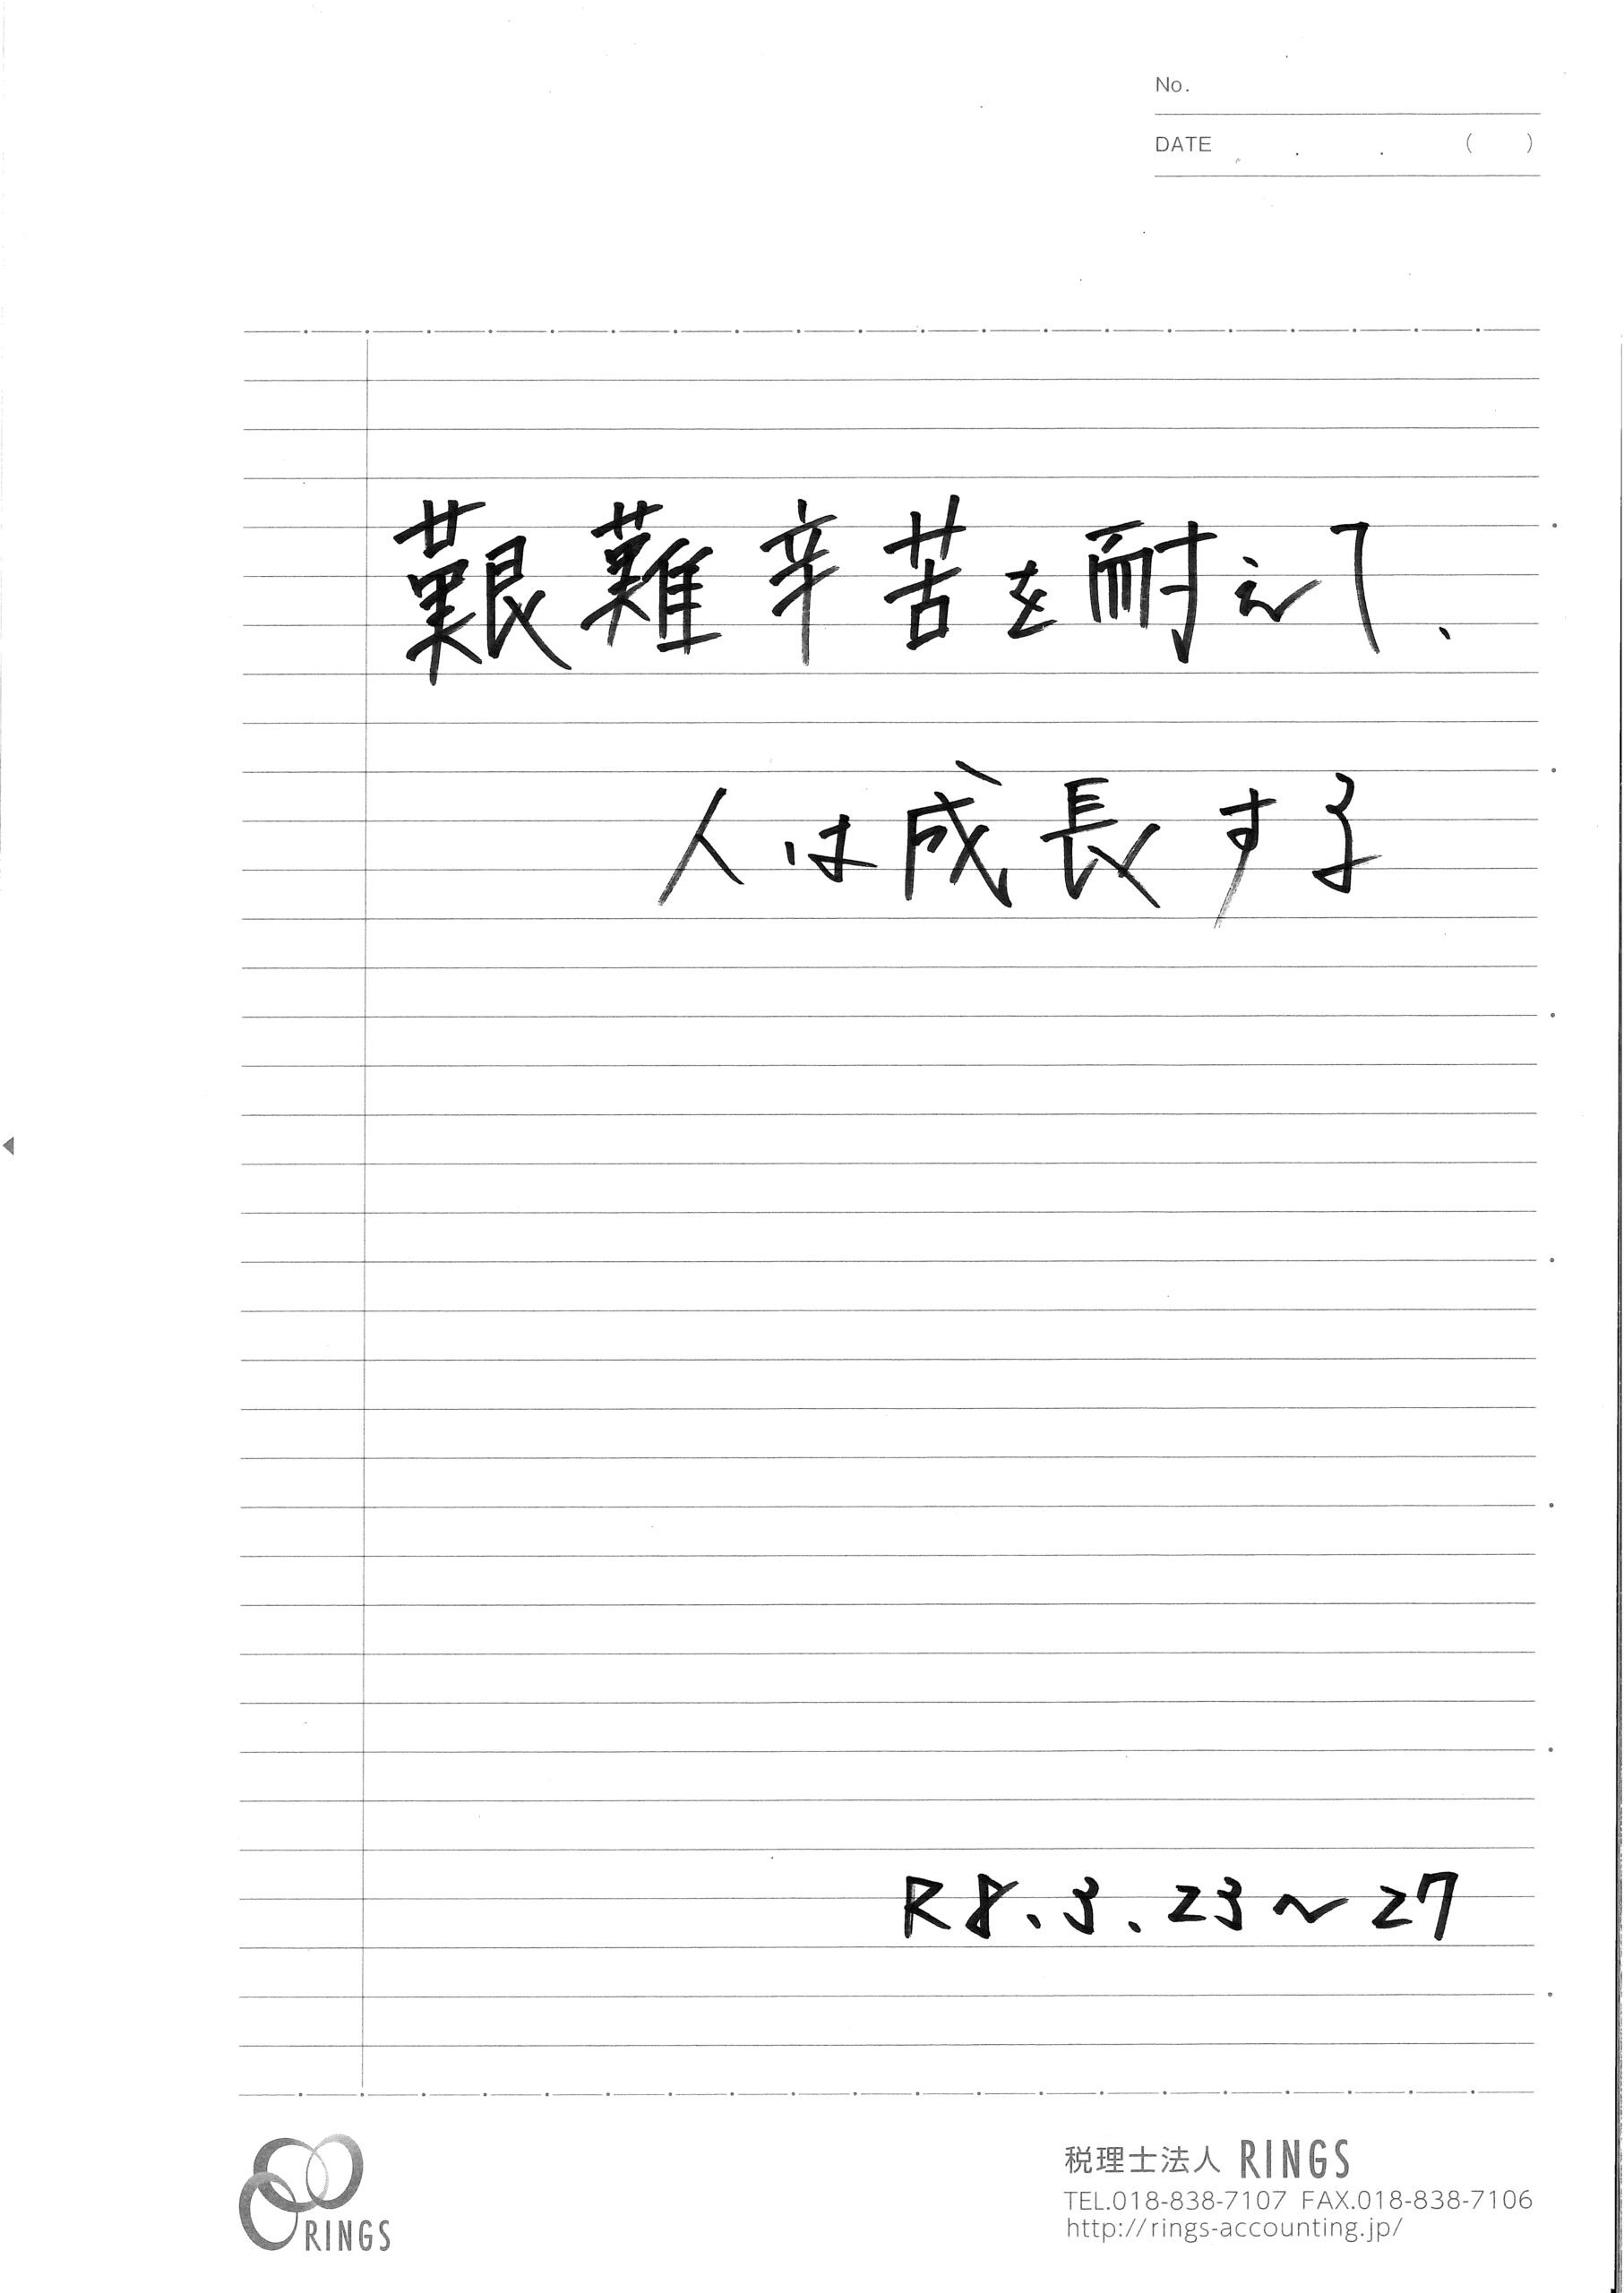 No.
DATE . . ( )
艱難辛苦を耐えて、
人は成長する
R8.3.23〜27
RINGS
税理士法人 RINGS
TEL.018-838-7107 FAX.018-838-7106
http://rings-accounting.jp/